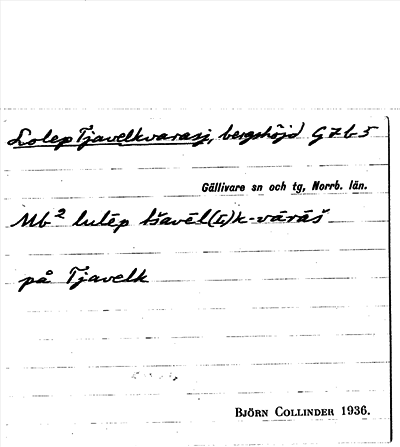 Lolep Tjavelkvarasj, bergshöjd G7b5
Gällivare sn och tg, Norrb. län.
Mb² lulēp tšavēl(ɛ)k-vārāš
på Tjavelk
BJÖRN COLLINDER 1936.